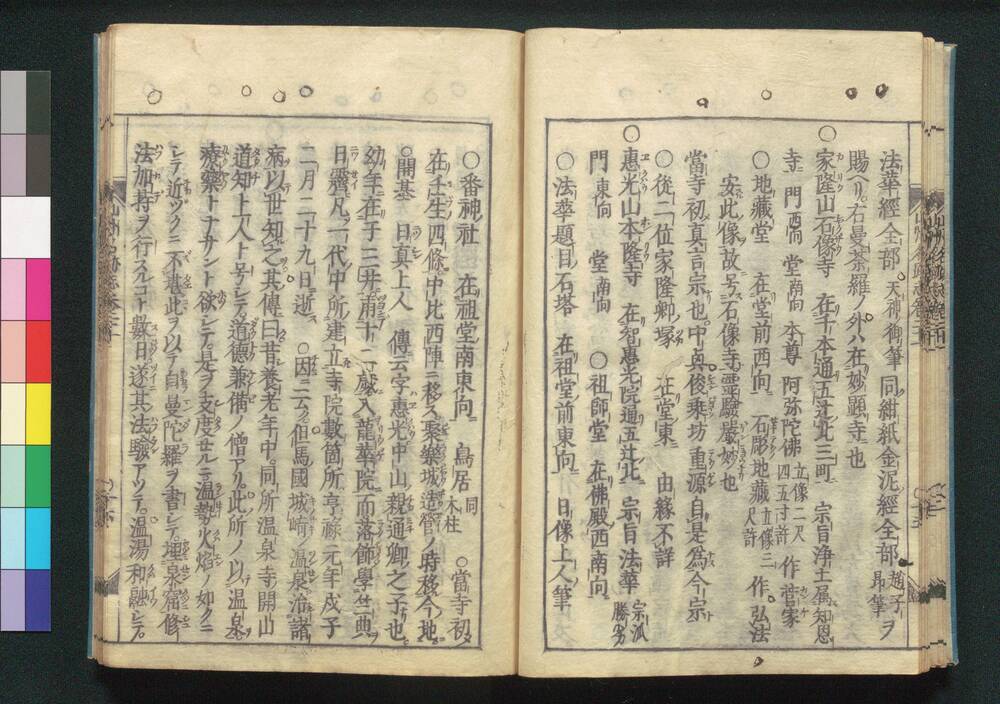 法華經全部。天神御筆同紺紙金泥經全部。趙子昻筆ヲ
賜ヘリ。右曼荼羅ノ外ハ在妙顯寺也
○家隆山石像寺 在千本通五辻北三町 宗旨浄土属知恩
寺 門西向 堂南向 本尊 阿弥陀佛 立像二尺四五寸許 作 菅家
○地蔵堂 在堂前西向 石彫地蔵 立像三尺許 作 弘法
安此像故号石像寺霊驗嚴妙也
當寺初真言宗也。中興俊乗坊重源自是爲今ノ宗
○從二位家隆卿塚 在堂東 由縁不詳
○惠光山本隆寺 在智惠光院通五辻北 宗旨法華 宗派勝劣
門東向 堂南向 ○祖師堂 在佛殿西南向
○法華題目石塔 在祖堂前東向 日像上人筆
○番神社 在祖堂南東向 鳥居 同木柱 ○當寺初メ
在壬生四條中比西陣ニ移ス聚樂城造營ノ時移今ノ地
○開基 日真上人 傳云字惠光中山親通卿之子也
幼年在于三井甫十二歳入龍華院而落飾學竺典ヲ
日齊凡一代中所建立寺院數箇所享禄元年戊子
二月二十九日逝ス ○因ニ云。但馬國城崎ノ温泉治諸
病以世知之其傳曰昔養老年中。同所温泉寺開山
道知上人ト号シテ。道德兼備ノ僧アリ。此所ノ以温泉
療薬トナサント欲シテ。是ヲ支度セルニ温勢火焔ノ如クニ
シテ近ツクニ不堪此ヲ以テ自曼陀羅ヲ書シテ。埋泉窟修
法加持ヲ行フコト數日遂其法驗アツテ。温湯和融シテ。